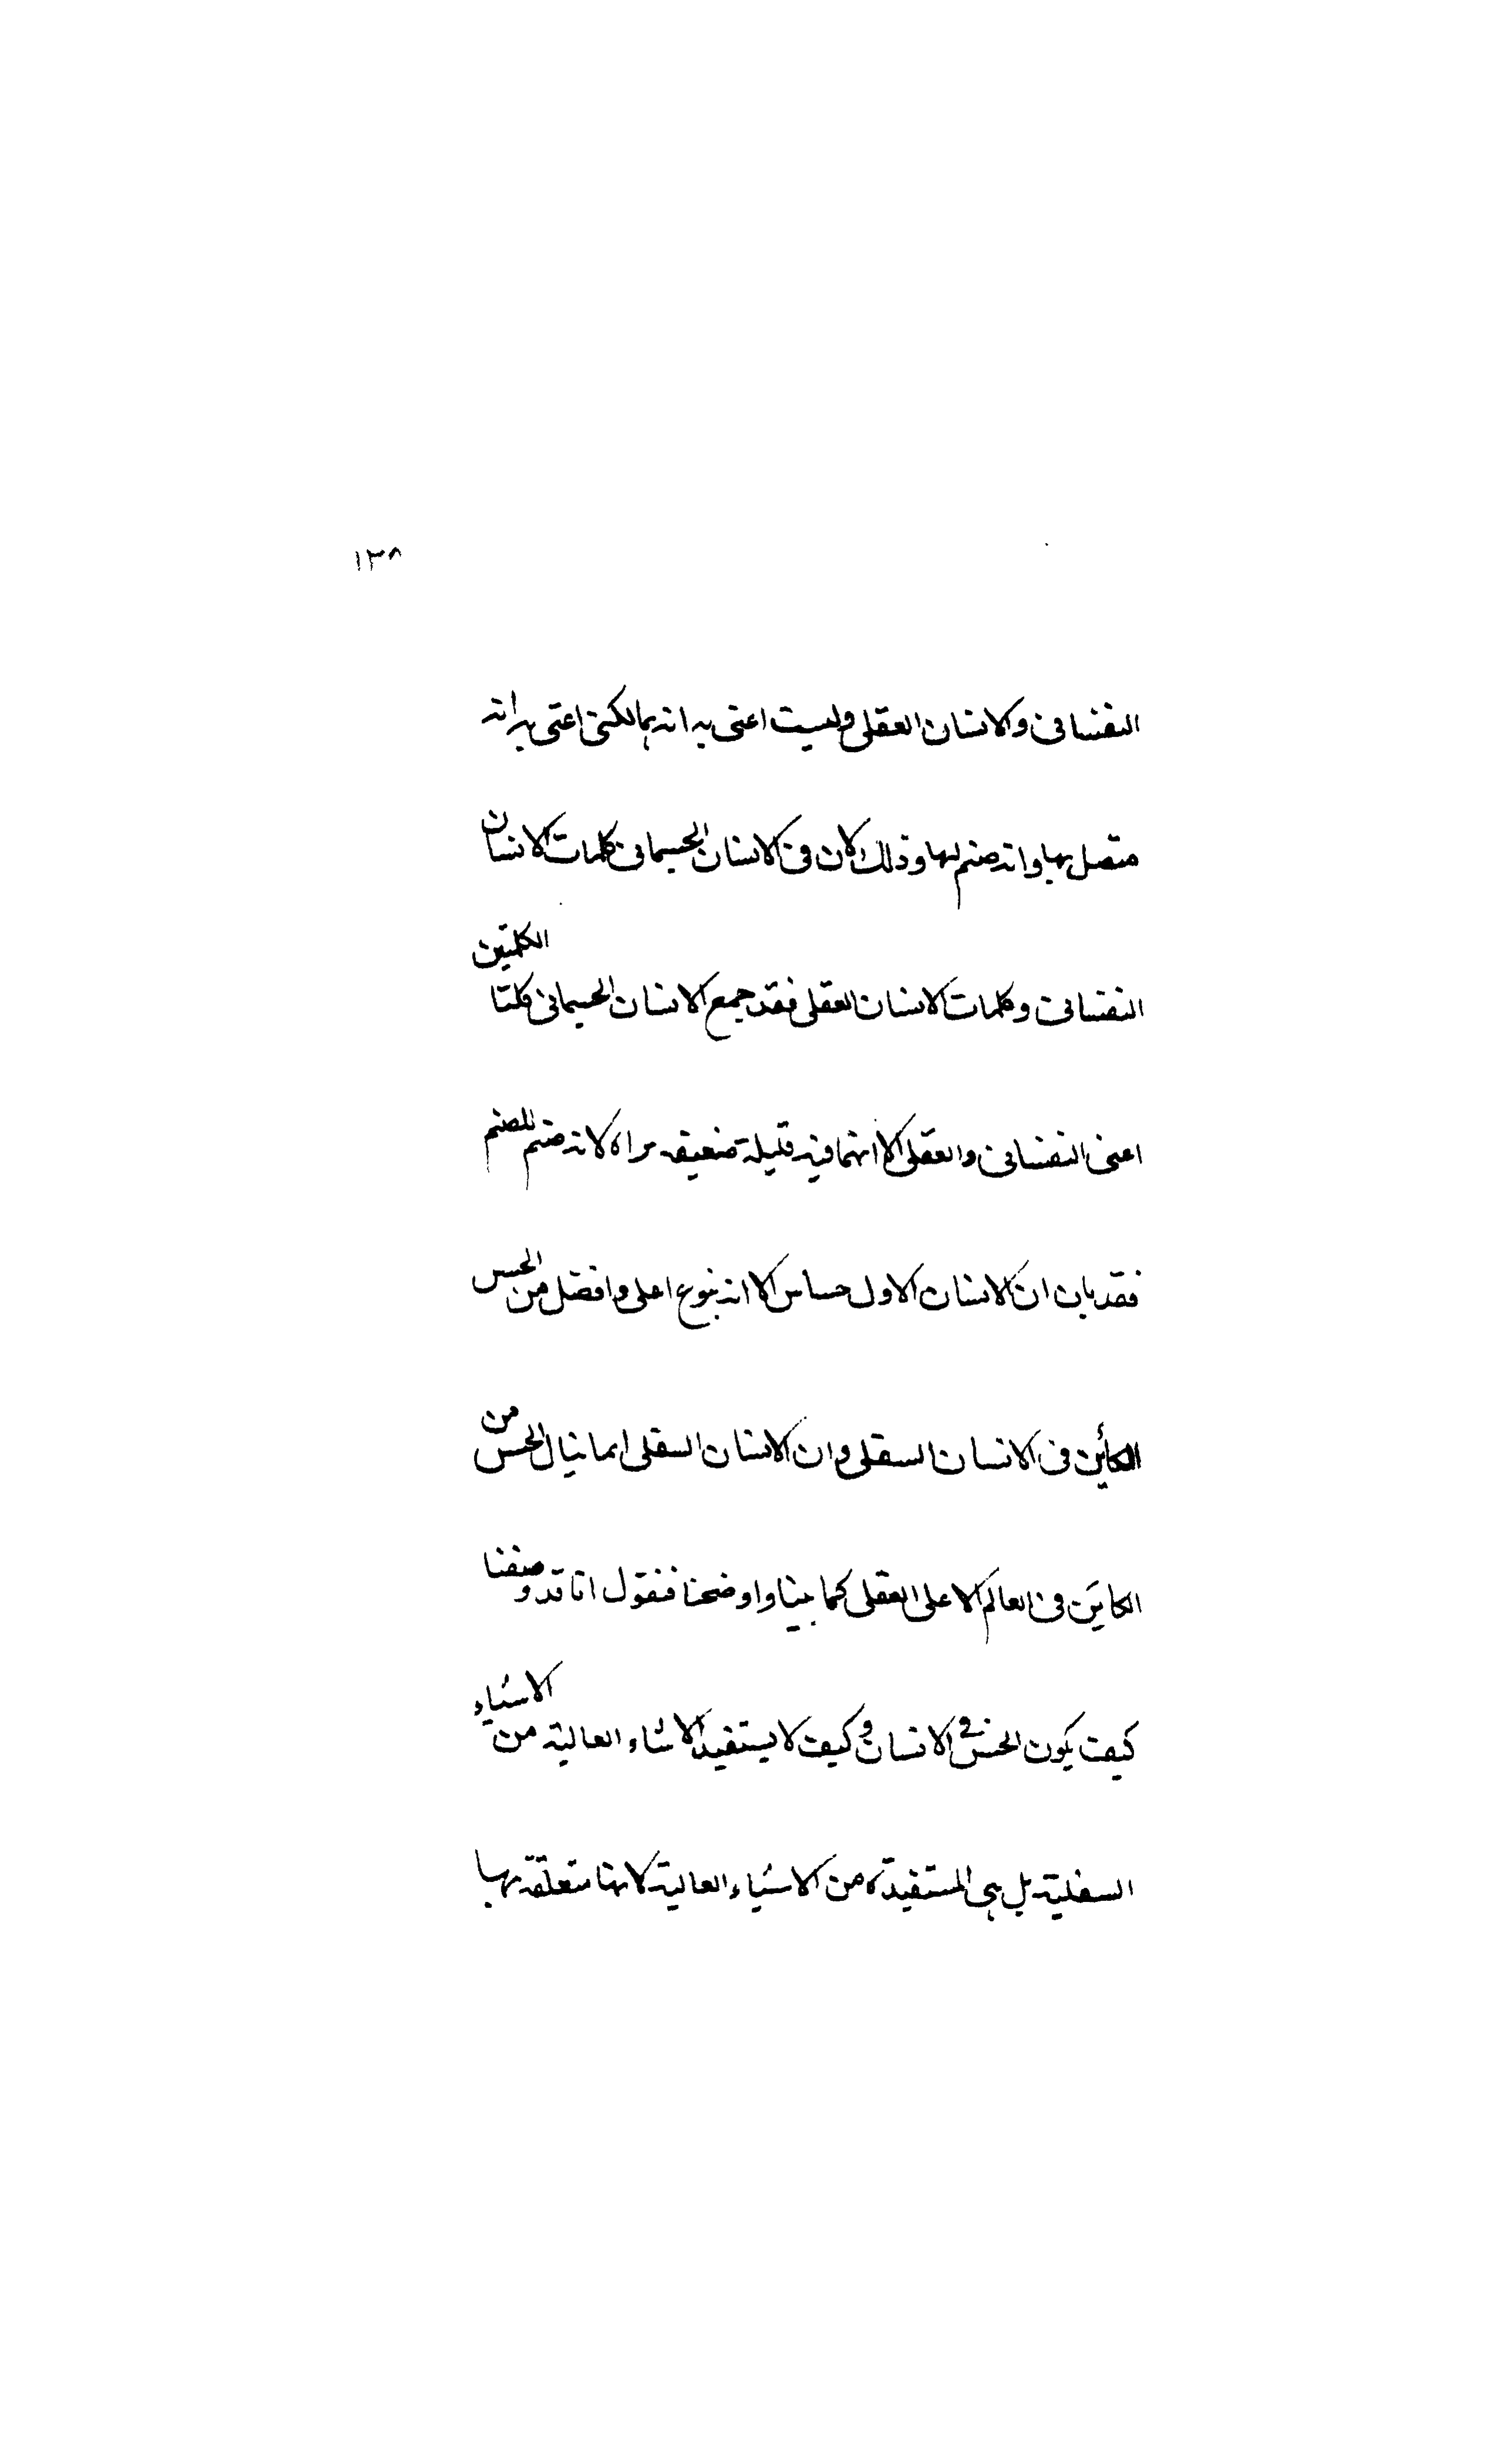 ١٣٨
النفسانى والانسان العقلى وليست اعنى به انه هما لكنى اعنى به انه
متصل بها وانه صنم لها وذلك لان فى الانسان الجسمانى كلمات الانسان
النفسانى وكلمات الانسان العقلى فقد جمع الانسان الجسمانى كلتا الكلمتين
اعنى النفسانى والعقلى الا انهما فيه قليلة ضعيفه لانه صنم للصنم
فقد بان ان الانسان الاول حساس الا انه بنوع اعلى وافضل من الحس
الكائن فى الانسان السفلى وان الانسان السفلى انما ينال الحس من
الكاين فى العالم الاعلى العقلى كما بينا واوضحنا فنقول انا قد وصفنا
كيف يكون الحس فى الانسان وكيف لا يستفيد الاشياء العالية من الاشياء
السفلية بل هى المستفيدة من الاشياء العالية لانها متعلقة بها